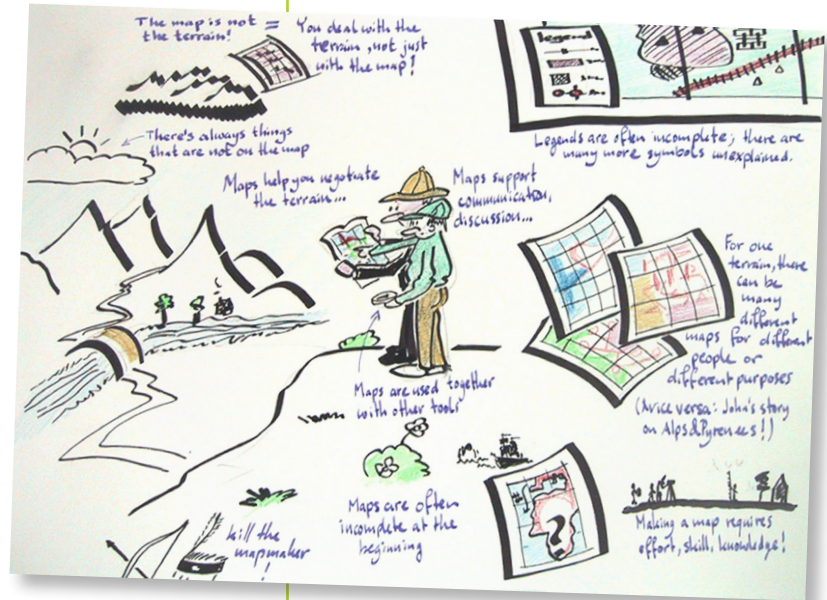 The map is not
the terrain!
=
You deal with the
terrain, not just
with the map!
Legend
Legends are often incomplete; there are
many more symbols unexplained.
There's always things
that are not on the map
Maps help you negotiate
the terrain...
Maps support
communication,
discussion...
For one
terrain, there
can be
many
different
maps for different
people or
different purposes
(& vice versa: John's story
on Alps & Pyrenees!)
Maps are used together
with other tools
Maps are often
incomplete at the
beginning
?
kill the
mapmaker
!
Making a map requires
effort, skill, knowledge!